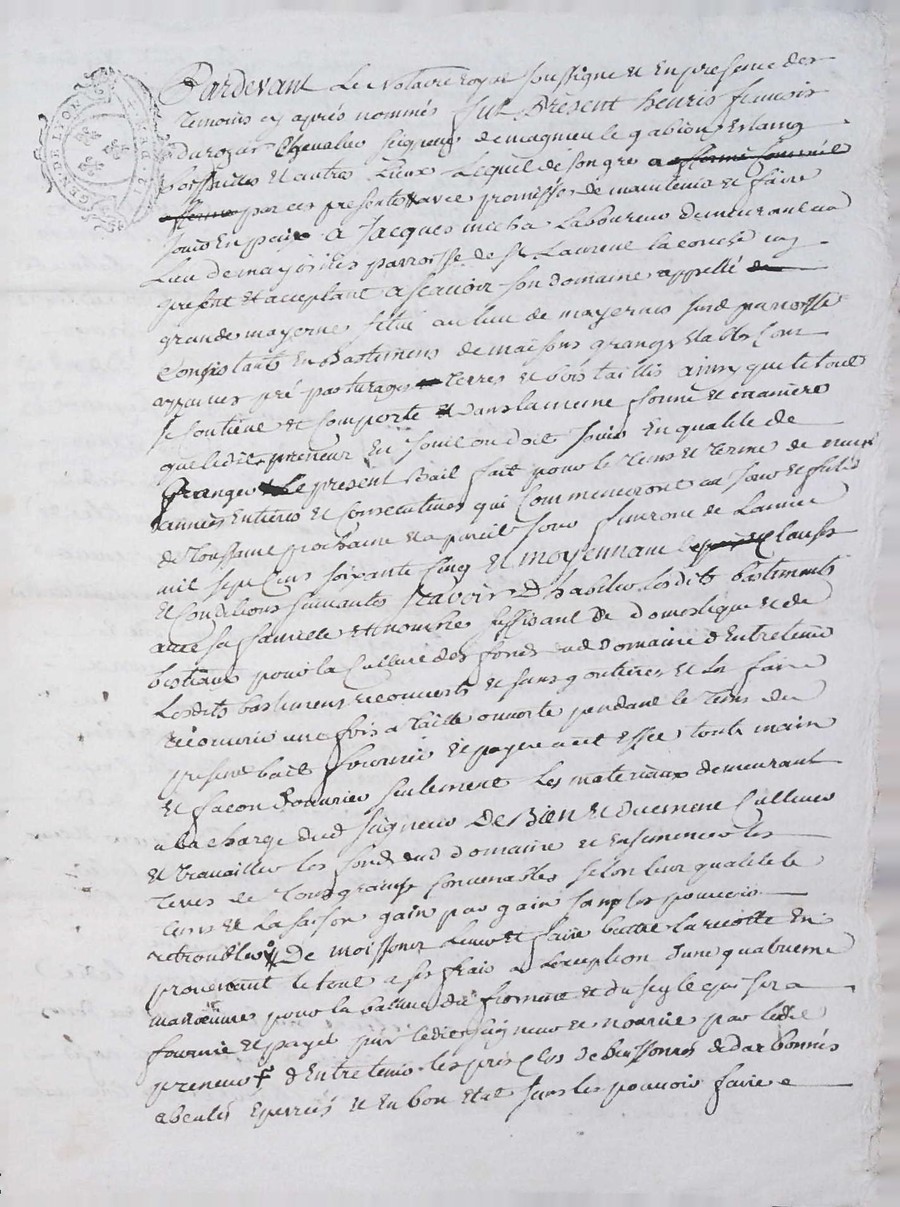 GEN. DE LYON
Pardevant Le Notaire royal Soussigné et En presence des
temoins cy aprés nommés fut Présent henris francois
Durozat Chevalier Seigneur de magnieu le gabion
et autres Lieux Lequel de son gré a
par ces presentes avec promesse de maintenir et faire
Jouir En paix A Jacques micha Laboureur demeurant au
Lieu de mayernes parroisse de St Laurent la conche icy
present et acceptant a Scavoir Son domaine appellé
grande mayerne Situé au lieu de mayernes susd parroisse
Consistant En Bastimens de maisons granges Estables Cour
pré pasturages terres et bois taillis ainsy que le tout
se Contient et Comporte et Dans la meme forme et maniere
que ledit preneur En Jouit ou doit Jouir En qualité de
Granger Le present Bail fait pour le tems et terme de neuf
années Entieres et Consecutives qui Commenceront au Jour et feste
de Toussaint prochaine et a pareil Jour finiront de Lannée
mil sept cens soixante Cinq et moyennant les clauses
et Conditions Suivantes Scavoir D'habiter lesdits bastiments
avec sa famille et nombre Suffisant de Domestique et de
bestiaux pour la Culture des fonds dud Domaine D'Entretenir
Lesdits bastimens recouverts et sans goutieres et les faire
recouvrir une fois a taille ouverte pendant le tems du
present bail fournir et payer a cet effet toute main
et facon D'ouvrier seulement Les materiaux demeurant
a la charge dud Seigneur De Bien et Duement Cultiver
et travailler les fonds dud Domaine et Ensemencer les
terres de tous grains Convenables selon leur qualité le
tems et La saison gain par gain sans les pouvoir
retroubler De moissonner Lever et faire battre la recolte En
provenant le tout a ses frais a L'exception d'une quatrieme
manoeuvre pour la batture du froment et du seigle qui sera
fournie et payé par ledit Seigneur et nourrie par ledit
preneur D'Entretenir les prés Clos De Buissonnés
abealés Epierrés et En bon Etat Sans les pouvoir faire